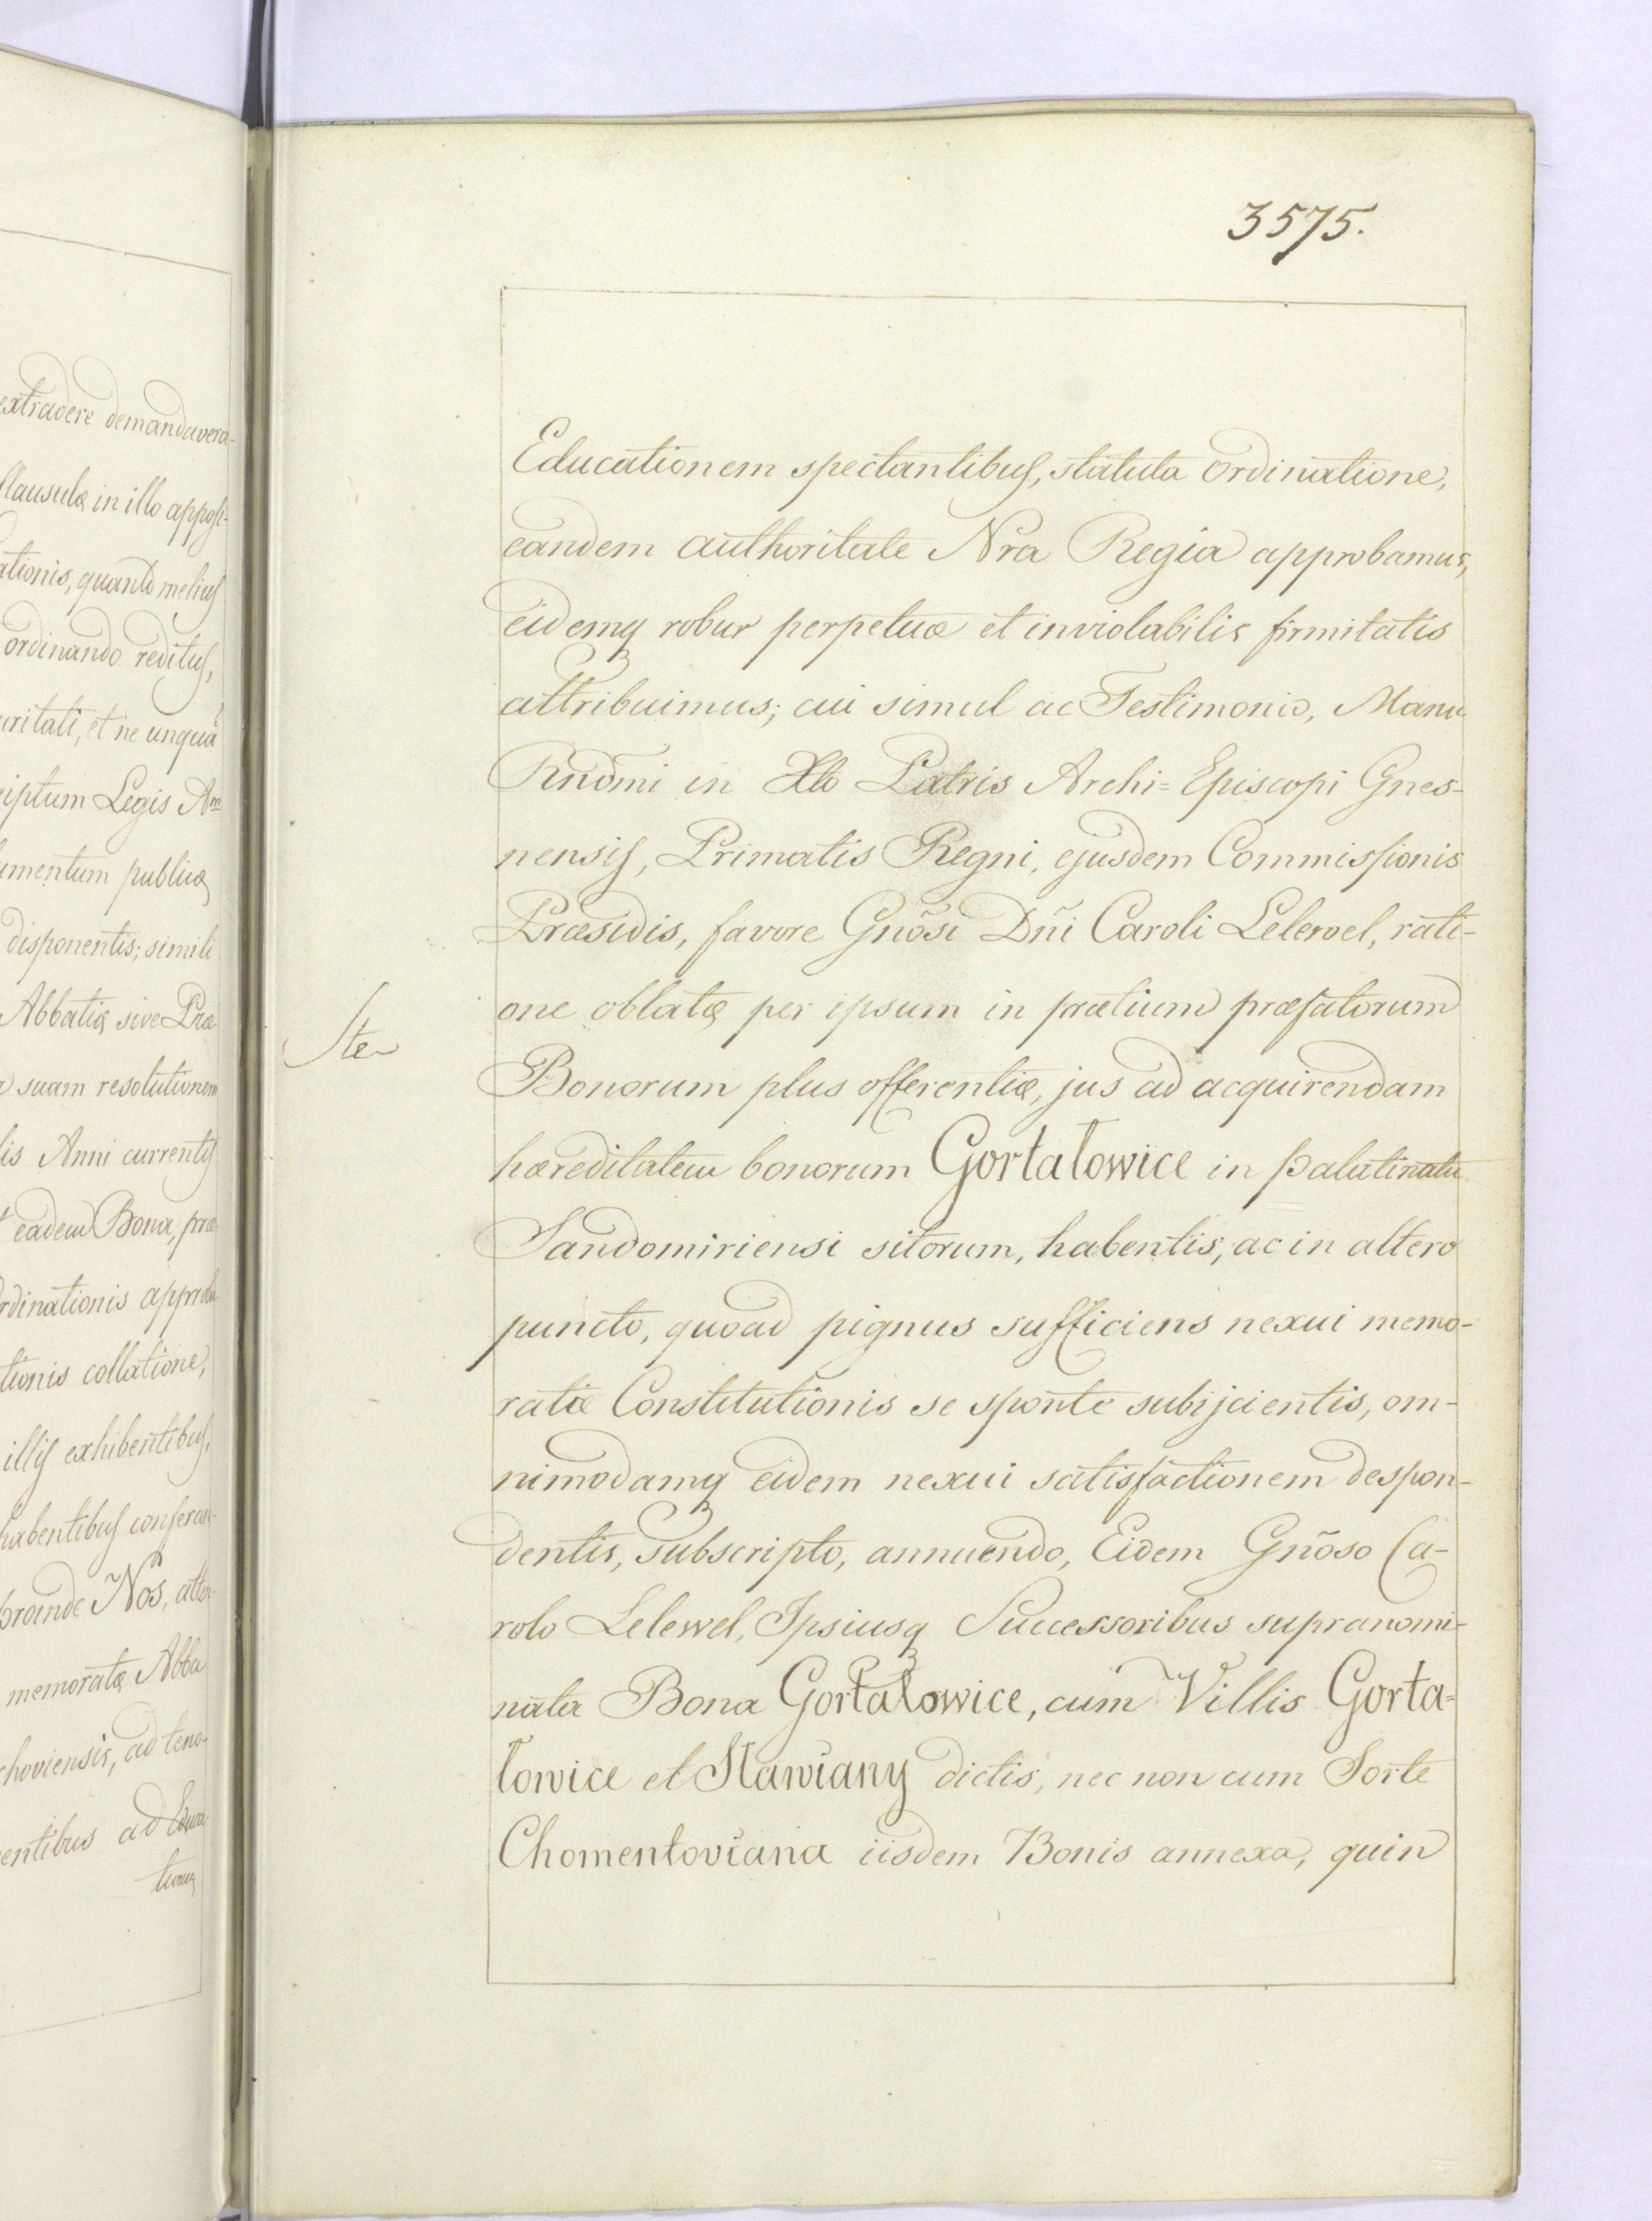 extradere demandavera-
Clausulæ in illo apposi-
ationis, quanto melius
ordinando reditus,
uritati, et ne unquā
riptum Legis
umentum publicæ
disponentis; simili
Abbatiæ sive Præ-
suam resolutionem
lis Anni currentis
eadem Bona, præ-
rdinationis approba
tionis collatione,
illis exhibentibus,
habentibus conferen-
proinde Nos, atten-
memoratæ Abba
choviensis, ad teno-
entibus ad Educa
3575.
Educationem spectantibus, statuta ordinatione,
eandem authoritate Nra Regia approbamus,
eidemq robur perpetuæ et inviolabilis firmitatis
attribuimus; cui simul ac Testimonio, Manu
Rndmi in Xto Patris Archi=Episcopi Gnes-
nensis, Primatis Regni, ejusdem Commissionis
Præsidis, favore Gnōsi Dñi Caroli Lelewel, rati-
one oblatæ per ipsum in prætium præfatorum
Ste
Bonorum plus offerentiæ, jus ad acquirendam
hæreditatem bonorum Gortatowice in Palatinatu
Sandomiriensi sitorum, habentis, ac in altero
puncto, quoad pignus sufficiens nexui memo-
ratæ Constitutionis se sponte subijcientis, om-
nimodamq eidem nexui satisfactionem despon-
dentis, subscripto, annuendo, Eidem Gnōso Ca-
rolo Lelewel, Ipsiusq Successoribus supranomi-
nata Bona Gortatowice, cum Villis Gorta=
towice et Stawiany dictis, nec non cum Sorte
Chomentoviana iisdem Bonis annexa, quin